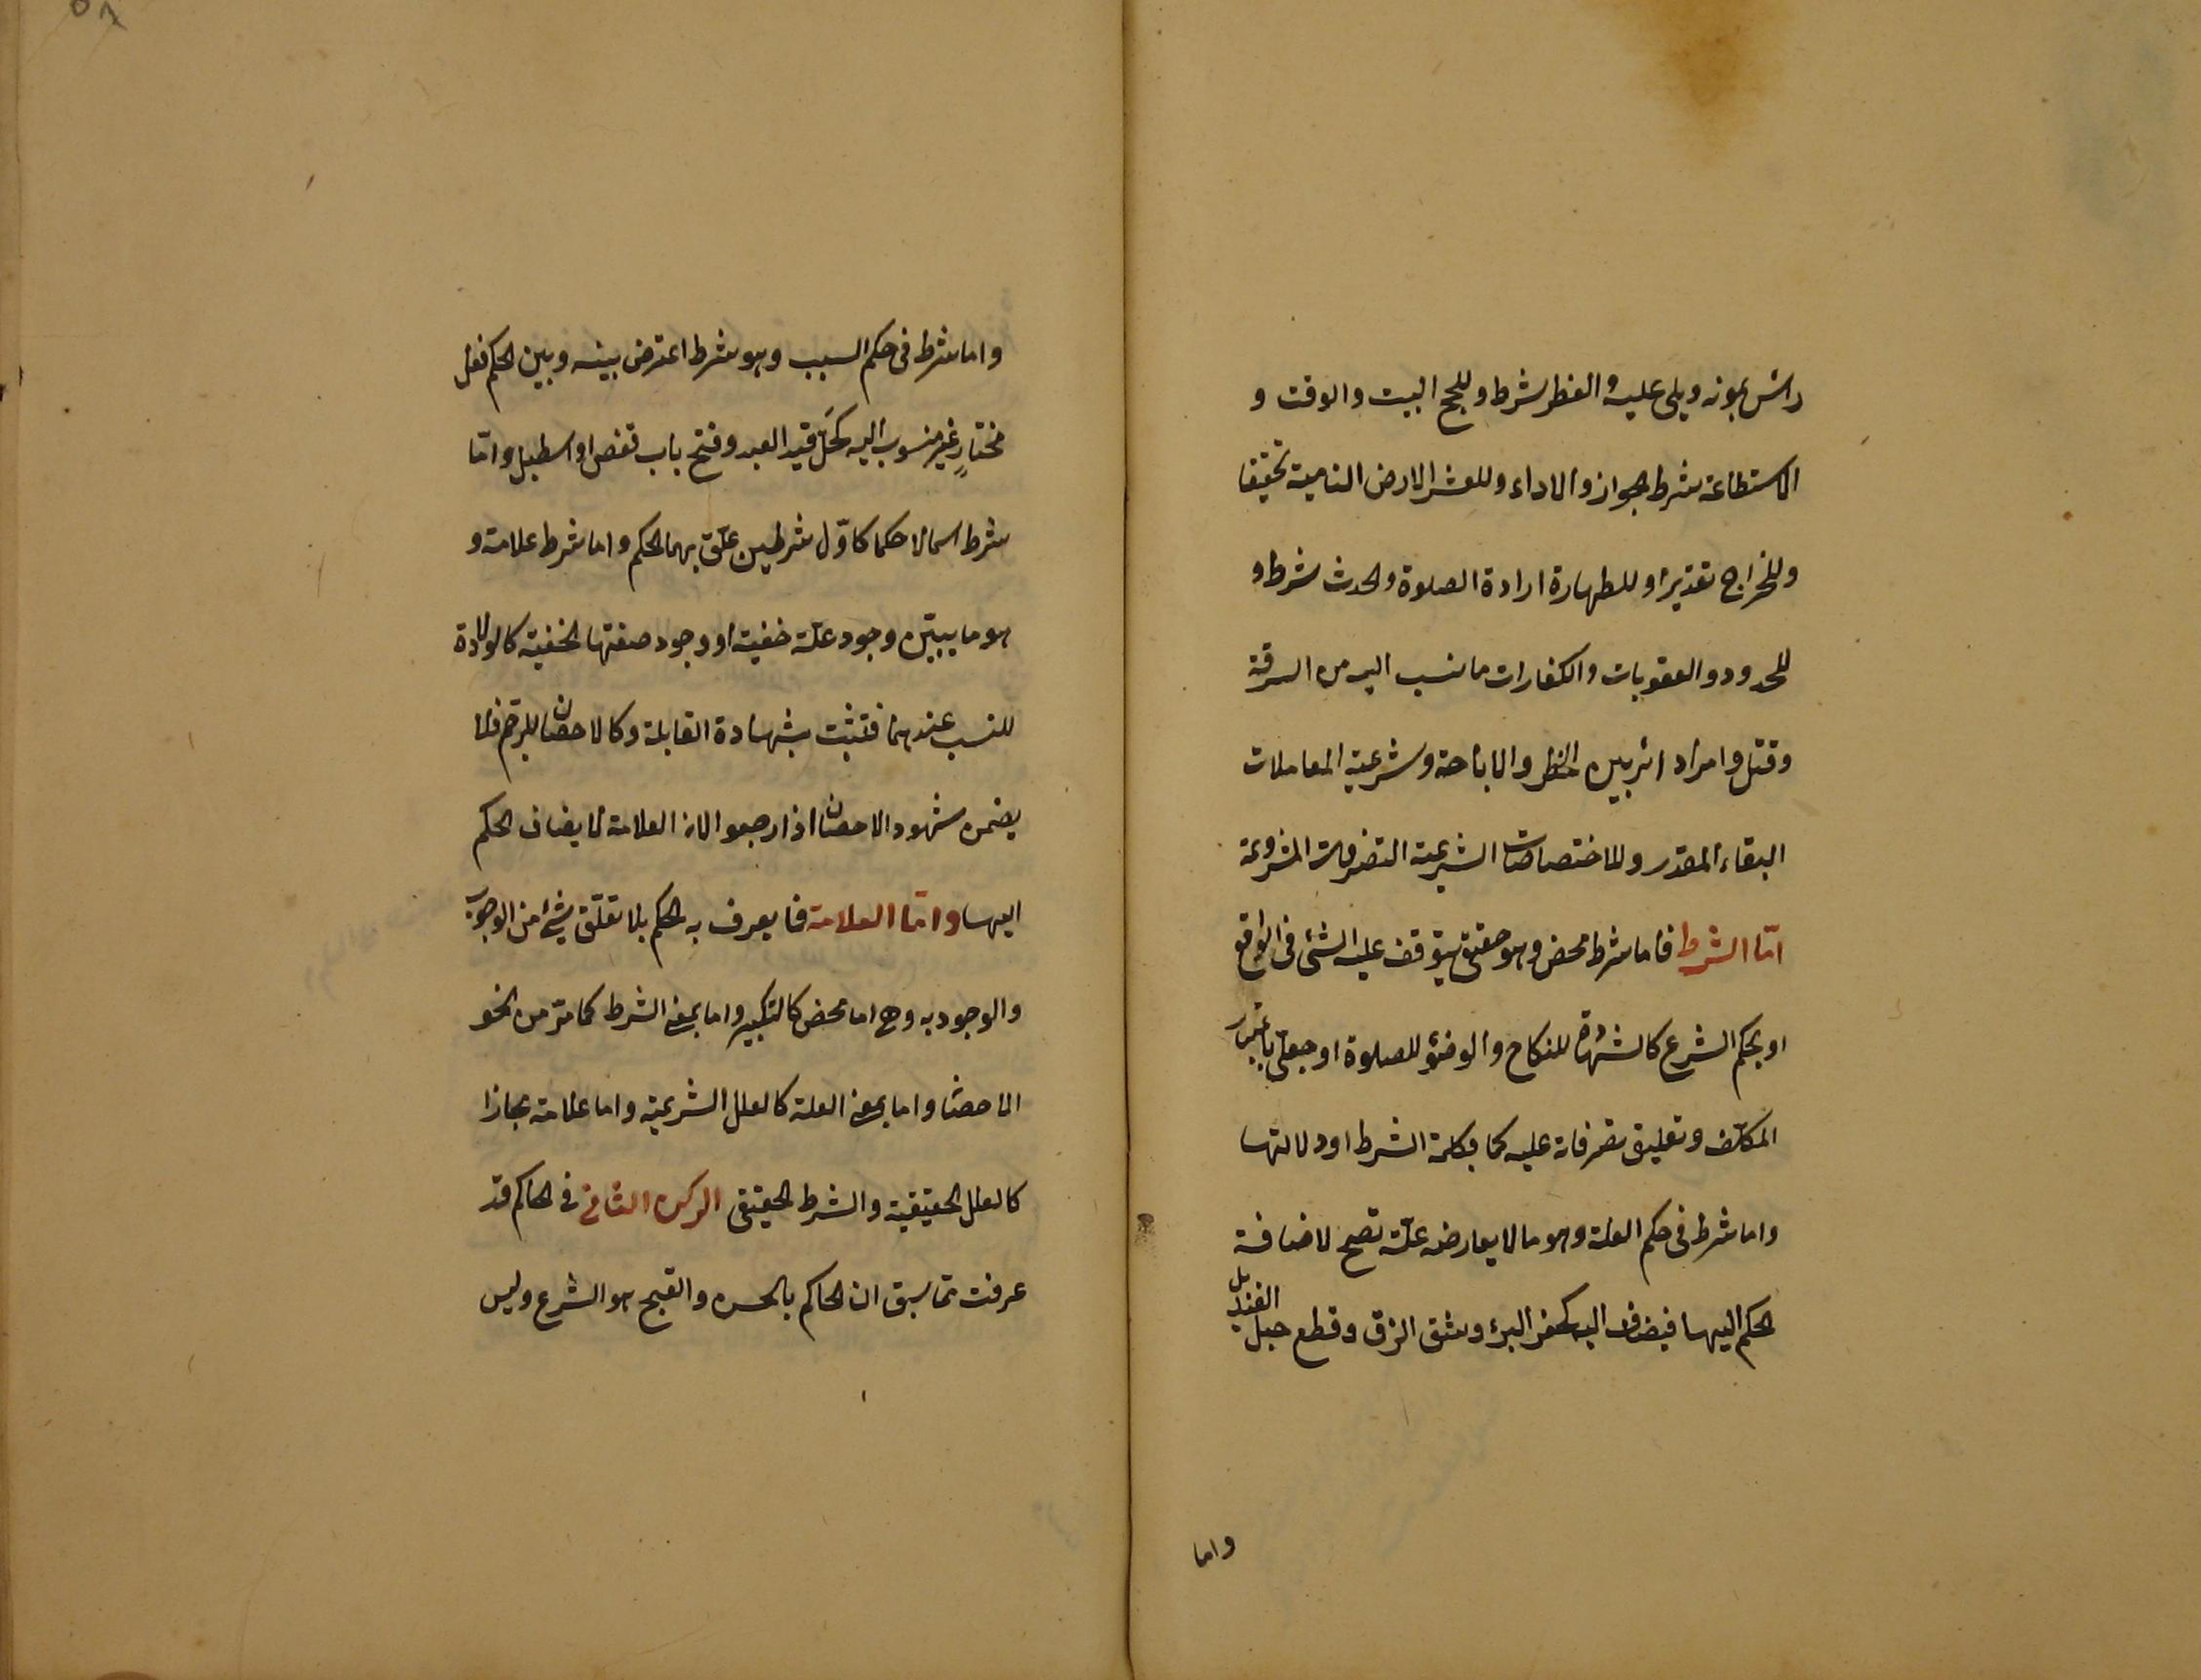 راس يمونه ويلي عليه والفطر شرط وللحج البيت والوقت و
الاستطاعة شرط الجواز والاداء وللعشر الارض النامية تحقيقا
وللخراج تقديرا وللطهارة ارادة الصلوة والحدث شرط و
للحدود والعقوبات والكفارات ما نسب اليه من السرقة
وقتل وامر دائر بين الحظر والاباحة وشرعية المعاملات
البقاء المقدر وللاختصاصات الشرعية التصرفات المشروعة
اما الشرط فاما شرط محض وهو حقيقي يتوقف عليه الشئ في الواقع
او بحكم الشرع كالشهود للنكاح والوضؤ للصلوة او جعلي باعتبار
المكلف وتعليق تصرفاته عليه كما بكلمة الشرط او دلالتها
واما شرط في حكم العلة وهو ما لا يعارضه علّة تصح لاضافة
الحكم اليها فيضاف اليه كحفر البئر وشق الزق وقطع حبل القنديل
واما
واما شرط في حكم السبب وهو شرط اعترض بينه وبين الحكم فعل
مختارٍ غير منسوب اليه كحَلّ قيد العبد وفتح باب قفص او اسطبل وامّا
شرط اسما لا حكما كاوّل شرطين علّق بهما الحكم واما شرط علامة و
هو ما يبيّن وجود علّة خفية او وجود صفتها الخفية كالولادة
للنسب عندهما فتثبت بشهادة القابلة وكالاحصان للرجم فلا
يضمن شهود الاحصان اذا رجعوا لان العلامة لا يضاف الحكم
اليها وامّا العلامة فما يعرف به الحكم بلا تعلّق شئ من الوجوب
والوجود به وهي اما محض كالتكبير واما بمعنى الشرط كما مرّ من نحو
الاحصان واما بمعنى العلة كالعلل الشرعية واما علامة مجازا
كالعلل الحقيقية والشرط الحقيقي الركن الثاني في الحاكم قد
عرفت مما سبق ان الحاكم بالحسن والقبح هو الشرع وليس